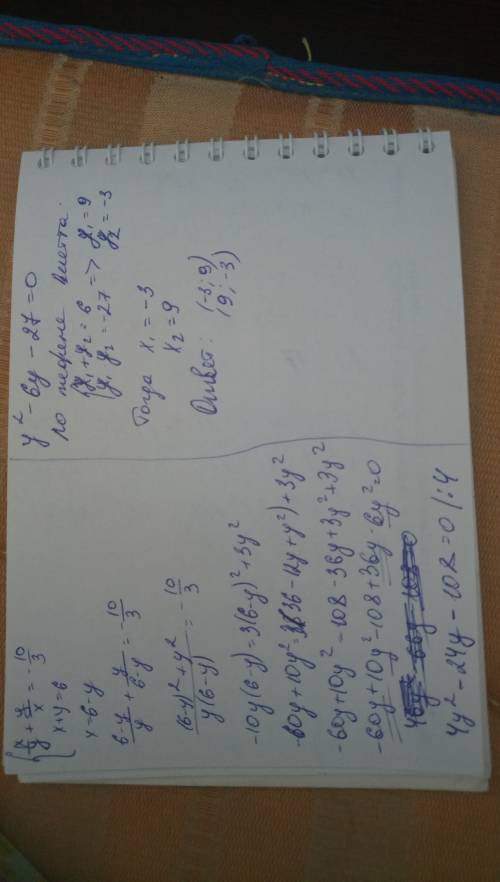 {x/y + y/x = -10/3
x+y=6
x=6-y
6-y/y + y/6-y = -10/3
(6-y)²+y²/y(6-y) = -10/3
-10y(6-y)=3(6-y)²+3y²
-60y+10y²=3(36-12y+y²)+3y²
-60y+10y²=108-36y+3y²+3y²
-60y+10y²-108+36y-6y²=0
4y²-24y-108=0 |:4
y²-6y-27=0
По теореме Виетта:
{y₁+y₂=6
y₁ y₂=-27 => y₁=9
y₂=-3
Тогда x₁=-3
x₂=9
Ответ: (-3; 9)
(9; -3)